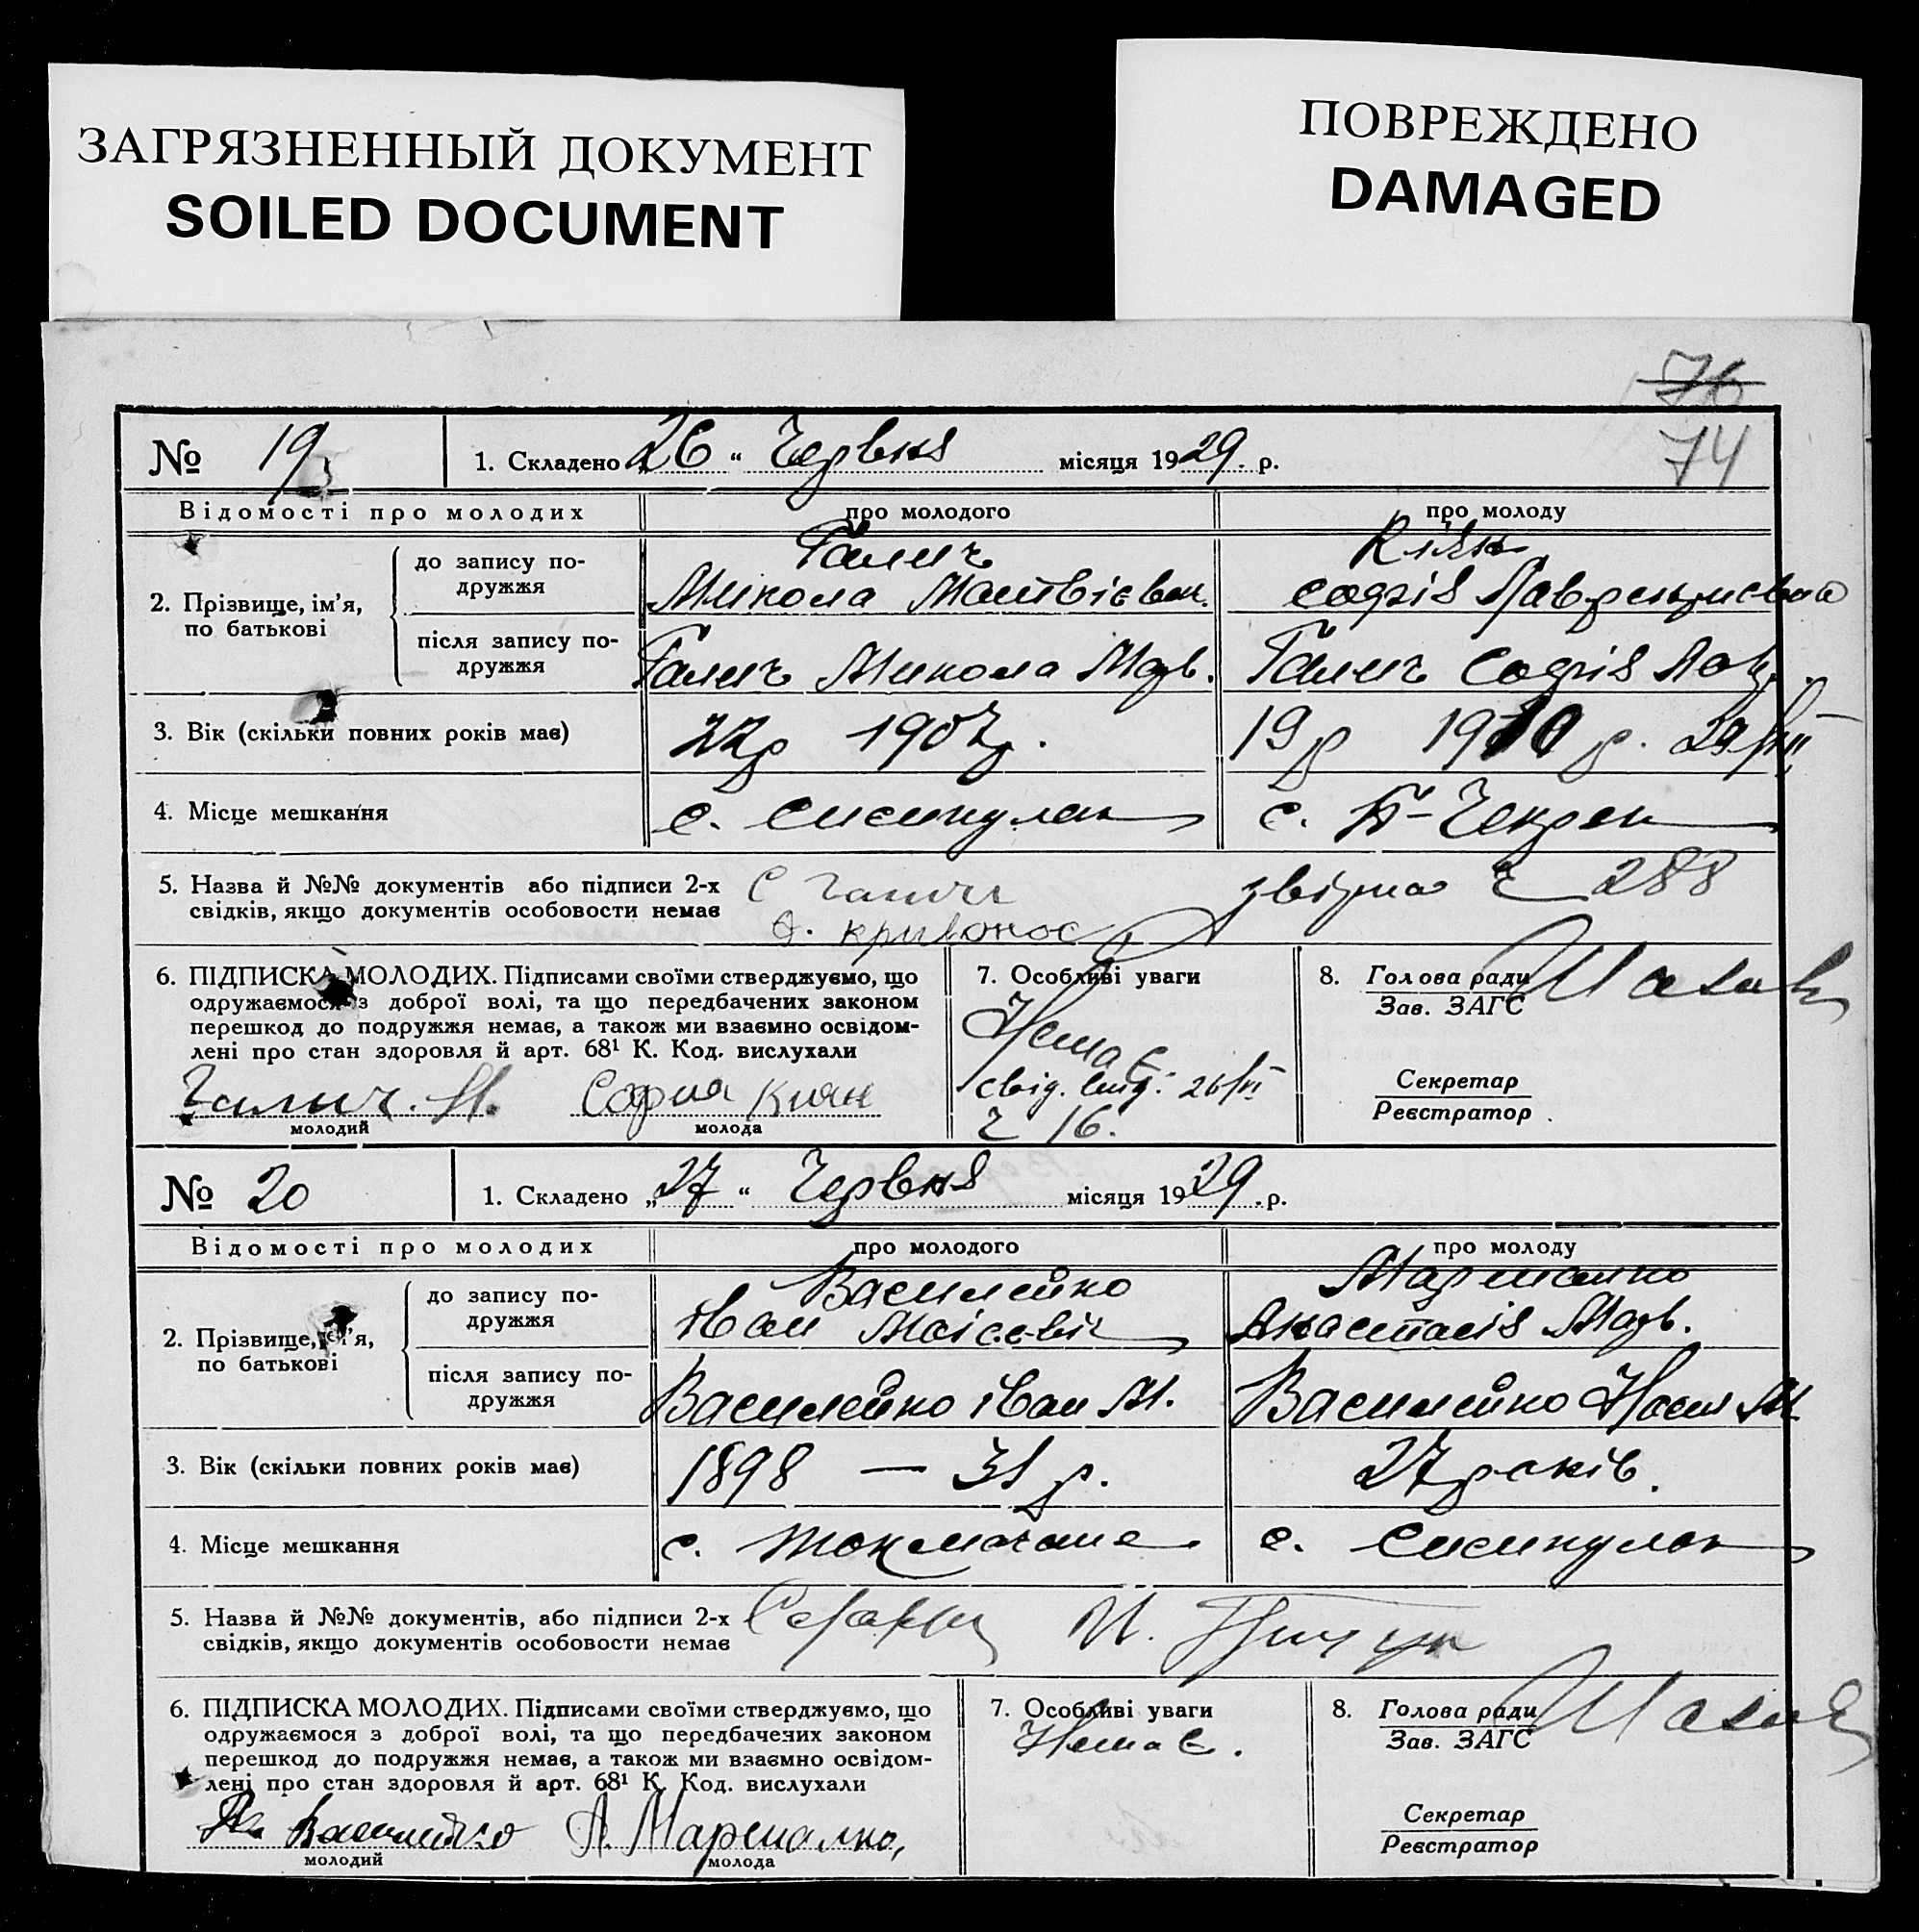 ЗАГРЯЗНЕННЫЙ ДОКУМЕНТ
SOILED DOCUMENT
ПОВРЕЖДЕНО
DAMAGED
76
74
№ 19
1. Складено „26“ Червня місяця 1929. р.
Відомості про молодих
про молодого
про молоду
2. Прізвище, ім'я, по батькові
до запису по-
дружжя
Галич
Микола Матвієвич.
Киян
Софія
після запису по-
дружжя
Галич Микола Матв.
Галич Софія Лав.
3. Вік (скільки повних років має)
22 р 1907 р.
19 р 1910 р. 29/VIII
4. Місце мешкання
с.
с. Б-Чекрак
5. Назва й №№ документів або підписи 2-х
свідків, якщо документів особовости немає
С Галич
звірка ч 288
О. Кривонос
6. ПІДПИСКА МОЛОДИХ. Підписами своїми стверджуємо, що
одружаємося з доброї волі, та що передбачених законом
перешкод до подружжя немає, а також ми взаємно освідом-
лені про стан здоров'я й арт. 68¹ К. Код. вислухали
Галич. Н.
молодий
София Киян
молода
7. Особливі уваги
Немає
свід. вид. 26/VI
ч 16.
8. Голова ради
Зав. ЗАГС
Секретар
Реєстратор
№ 20
1. Складено „27“ Червня місяця 1929. р.
Відомості про молодих
про молодого
про молоду
2. Прізвище, ім'я,
по батькові
до запису по-
дружжя
Василейко
Іван Маісєєвіч
Марченко
Анастасія Матв.
після запису по-
дружжя
Василейко Іван М.
Василейко Наст М.
3. Вік (скільки повних років має)
1898 — 31 р.
27 років.
4. Місце мешкання
с.
с.
5. Назва й №№ документів, або підписи 2-х
свідків, якщо документів особовости немає
И.
6. ПІДПИСКА МОЛОДИХ. Підписами своїми стверджуємо, що
одружаємося з доброї волі, та що передбачених законом
перешкод до подружжя немає, а також ми взаємно освідом-
лені про стан здоров'я й арт. 68¹ К. Код. вислухали
Василейко
молодий
А.
молода
7. Особливі уваги
Немає.
8. Голова ради
Зав. ЗАГС
Секретар
Реєстратор